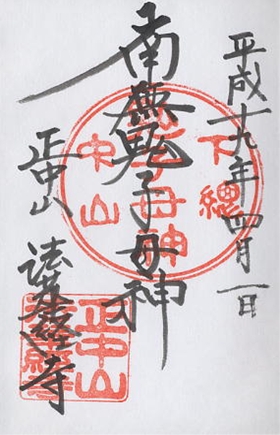 平成十九年四月一日
南無鬼子母神
正中山 法華経寺
下總
中山
鬼子母神
正中山
法華経寺